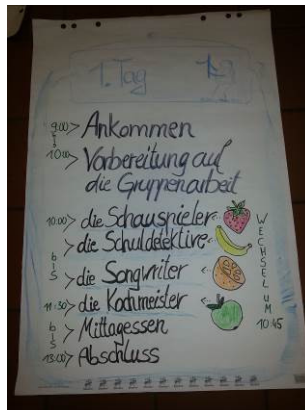 1. Tag
9:00 > Ankommen
bis
10:00 > Vorbereitung auf
die Gruppenarbeit
10:00 > die Schauspieler
> die Schuldetektive
bis
> die Songwriter
11:30 > die Kochmeister
WECHSEL UM
10:45
bis
> Mittagessen
13:00 > Abschluss